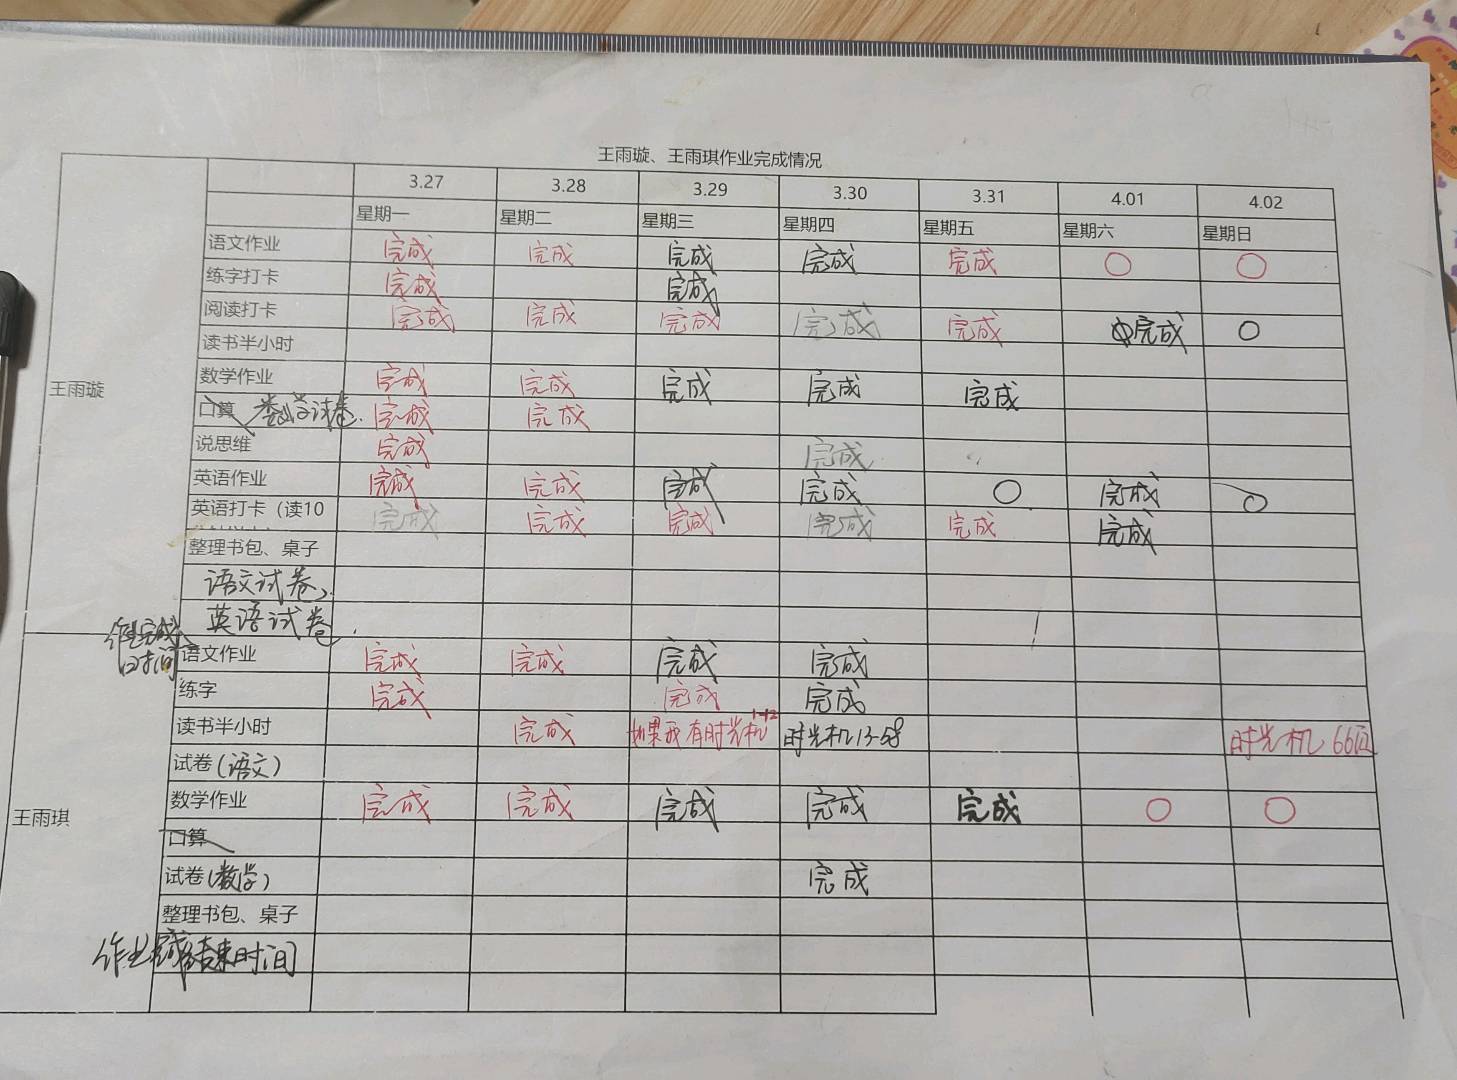 王雨璇、王雨琪作业完成情况
3.27 3.28 3.29 3.30 3.31 4.01 4.02
星期一 星期二 星期三 星期四 星期五 星期六 星期日
王雨璇
语文作业 完成 完成 完成 完成 完成 ○ ○
练字打卡 完成 完成
阅读打卡 完成 完成 完成 完成 完成 完成 ○
读书半小时
数学作业 完成 完成 完成 完成 完成
口算 数学试卷. 完成 完成
说思维 完成 完成
英语作业 完成 完成 完成 完成 ○ 完成 ○
英语打卡（读10 完成 完成 完成 完成 完成 完成
整理书包、桌子
语文试卷
英语试卷
作业完成
时间
王雨琪
语文作业 完成 完成 完成 完成
练字 完成 完成 完成
读书半小时 完成 如果我有时光机 1-12 时光机13-58 时光机 66页
试卷(语文)
数学作业 完成 完成 完成 完成 完成 ○ ○
口算
试卷(数学) 完成
整理书包、桌子
作业完成结束时间